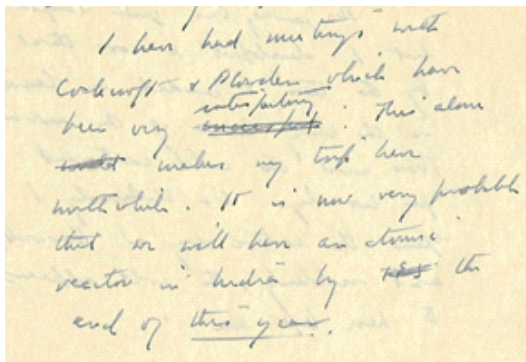 I have had meetings with
Cockcroft & Plowden which have
satisfactory
been very successful. This alone
makes my trip here
worthwhile. It is now very probable
that we will have an atomic
reactor in India by the
end of this year.